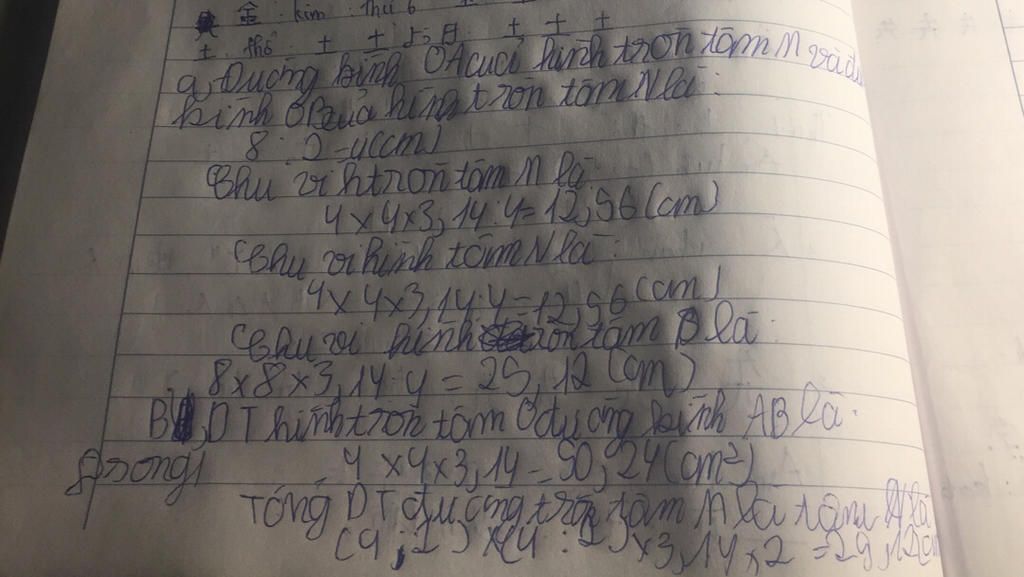 金 : kim : thứ 6
土 thổ : 土 土 ... 土 土 土
a, Đường kính OA của hình tròn tâm M và đư
kính OB của hình tròn tâm N là :
8 : 2 = 4 (cm)
Chu vi h tròn tâm M là
4 x 4 x 3,14 : 4 = 12,56 (cm)
Chu vi hình tâm N là :
4 x 4 x 3,14 : 4 = 12,56 (cm)
Chu vi hình tròn tâm O là :
8 x 8 x 3,14 : 4 = 25,12 (cm)
B, DT hình tròn tâm O đường kính AB là :
4 x 4 x 3,14 = 50,24 (cm²)
Tổng DT đường tròn tâm M là tâm N là
(4 : 2) x (4 : 2) x 3,14 x 2 = 25,12 (cm